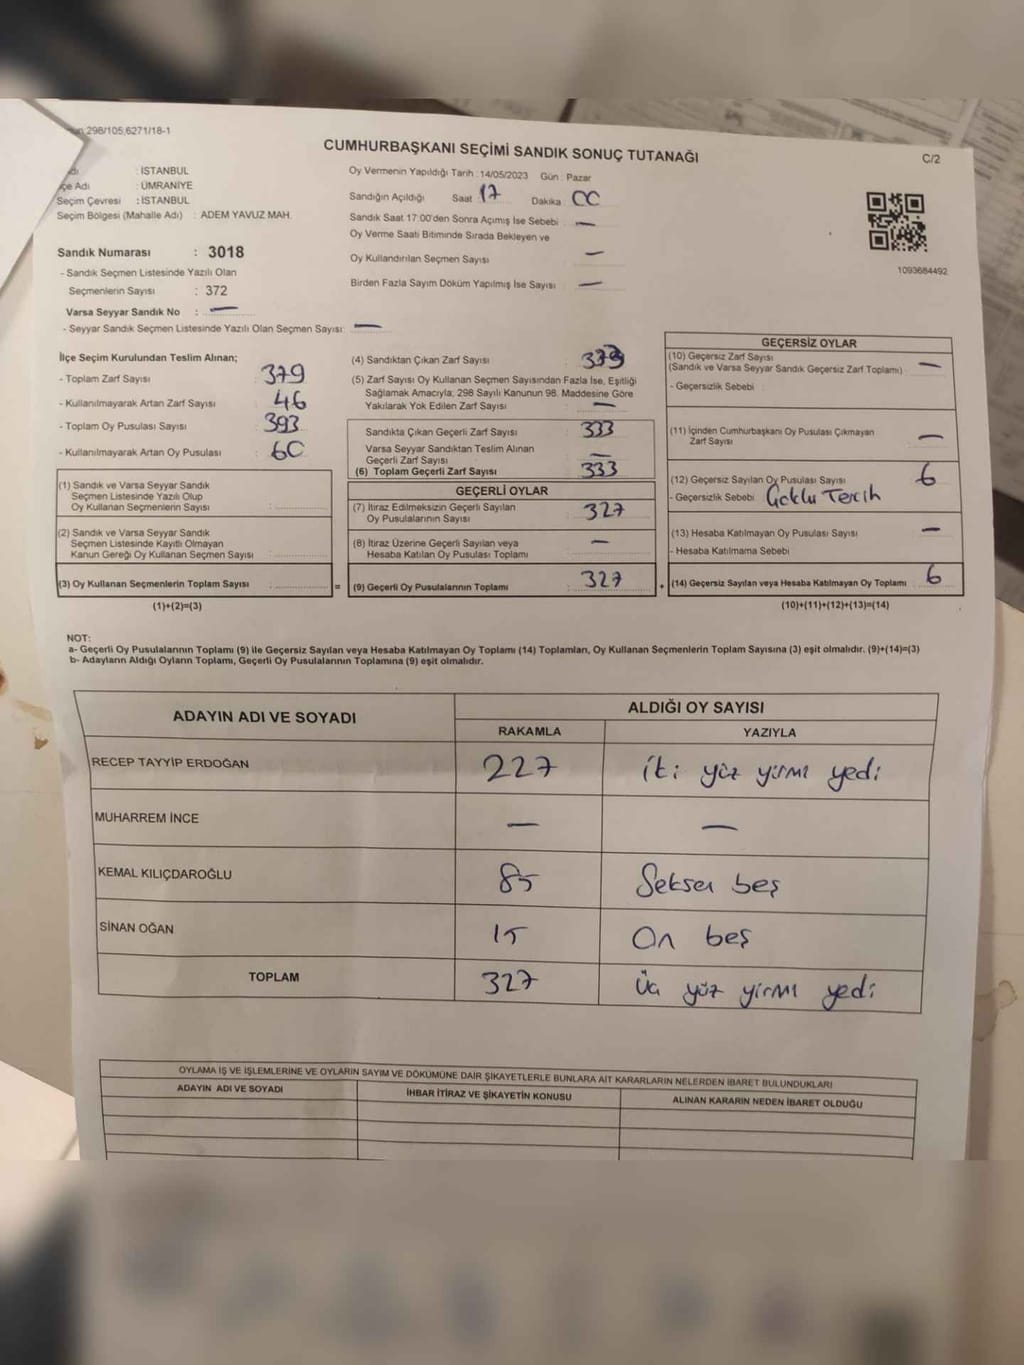 298/105;6271/18-1
CUMHURBAŞKANI SEÇİMİ SANDIK SONUÇ TUTANAĞI
C/2
: İSTANBUL
çe Adı : ÜMRANİYE
Seçim Çevresi : İSTANBUL
Seçim Bölgesi (Mahalle Adı) : ADEM YAVUZ MAH.
Sandık Numarası : 3018
- Sandık Seçmen Listesinde Yazılı Olan
Seçmenlerin Sayısı : 372
Varsa Seyyar Sandık No : —
- Seyyar Sandık Seçmen Listesinde Yazılı Olan Seçmen Sayısı: —
Oy Vermenin Yapıldığı Tarih : 14/05/2023 Gün : Pazar
Sandığın Açıldığı Saat 17 Dakika 00
Sandık Saat 17:00'den Sonra Açımış İse Sebebi —
Oy Verme Saati Bitiminde Sırada Bekleyen ve
Oy Kullandırılan Seçmen Sayısı —
Birden Fazla Sayım Döküm Yapılmış İse Sayısı —
1093684492
İlçe Seçim Kurulundan Teslim Alınan;
- Toplam Zarf Sayısı 379
- Kullanılmayarak Artan Zarf Sayısı 46
- Toplam Oy Pusulası Sayısı 393
- Kullanılmayarak Artan Oy Pusulası 60
(1) Sandık ve Varsa Seyyar Sandık
Seçmen Listesinde Yazılı Olup
Oy Kullanan Seçmenlerin Sayısı
(2) Sandık ve Varsa Seyyar Sandık
Seçmen Listesinde Kayıtlı Olmayan
Kanun Gereği Oy Kullanan Seçmen Sayısı
(3) Oy Kullanan Seçmenlerin Toplam Sayısı
(1)+(2)=(3)
=
(4) Sandıktan Çıkan Zarf Sayısı
(5) Zarf Sayısı Oy Kullanan Seçmen Sayısından Fazla İse, Eşitliği
Sağlamak Amacıyla, 298 Sayılı Kanunun 98. Maddesine Göre
Yakılarak Yok Edilen Zarf Sayısı —
Sandıkta Çıkan Geçerli Zarf Sayısı 333
Varsa Seyyar Sandıktan Teslim Alınan
Geçerli Zarf Sayısı —
(6) Toplam Geçerli Zarf Sayısı 333
GEÇERLİ OYLAR
(7) İtiraz Edilmeksizin Geçerli Sayılan
Oy Pusulalarının Sayısı 327
(8) İtiraz Üzerine Geçerli Sayılan veya
Hesaba Katılan Oy Pusulası Toplamı —
(9) Geçerli Oy Pusulalarının Toplamı 327
+
GEÇERSİZ OYLAR
(10) Geçersiz Zarf Sayısı
(Sandık ve Varsa Seyyar Sandık Geçersiz Zarf Toplamı) —
- Geçersizlik Sebebi
(11) İçinden Cumhurbaşkanı Oy Pusulası Çıkmayan
Zarf Sayısı —
(12) Geçersiz Sayılan Oy Pusulası Sayısı 6
- Geçersizlik Sebebi Çoklu Tercih
(13) Hesaba Katılmayan Oy Pusulası Sayısı —
- Hesaba Katılmama Sebebi
(14) Geçersiz Sayılan veya Hesaba Katılmayan Oy Toplamı 6
(10)+(11)+(12)+(13)=(14)
NOT:
a- Geçerli Oy Pusulalarının Toplamı (9) ile Geçersiz Sayılan veya Hesaba Katılmayan Oy Toplamı (14) Toplamları, Oy Kullanan Seçmenlerin Toplam Sayısına (3) eşit olmalıdır. (9)+(14)=(3)
b- Adayların Aldığı Oyların Toplamı, Geçerli Oy Pusulalarının Toplamına (9) eşit olmalıdır.
ADAYIN ADI VE SOYADI ALDIĞI OY SAYISI
RAKAMLA YAZIYLA
RECEP TAYYİP ERDOĞAN 227 iki yüz yirmi yedi
MUHARREM İNCE — —
KEMAL KILIÇDAROĞLU 85 Seksen beş
SİNAN OĞAN 15 On beş
TOPLAM 327 Üç yüz yirmi yedi
OYLAMA İŞ VE İŞLEMLERİNE VE OYLARIN SAYIM VE DÖKÜMÜNE DAİR ŞİKAYETLERLE BUNLARA AİT KARARLARIN NELERDEN İBARET BULUNDUKLARI
ADAYIN ADI VE SOYADI İHBAR İTİRAZ VE ŞİKAYETİN KONUSU ALINAN KARARIN NEDEN İBARET OLDUĞU